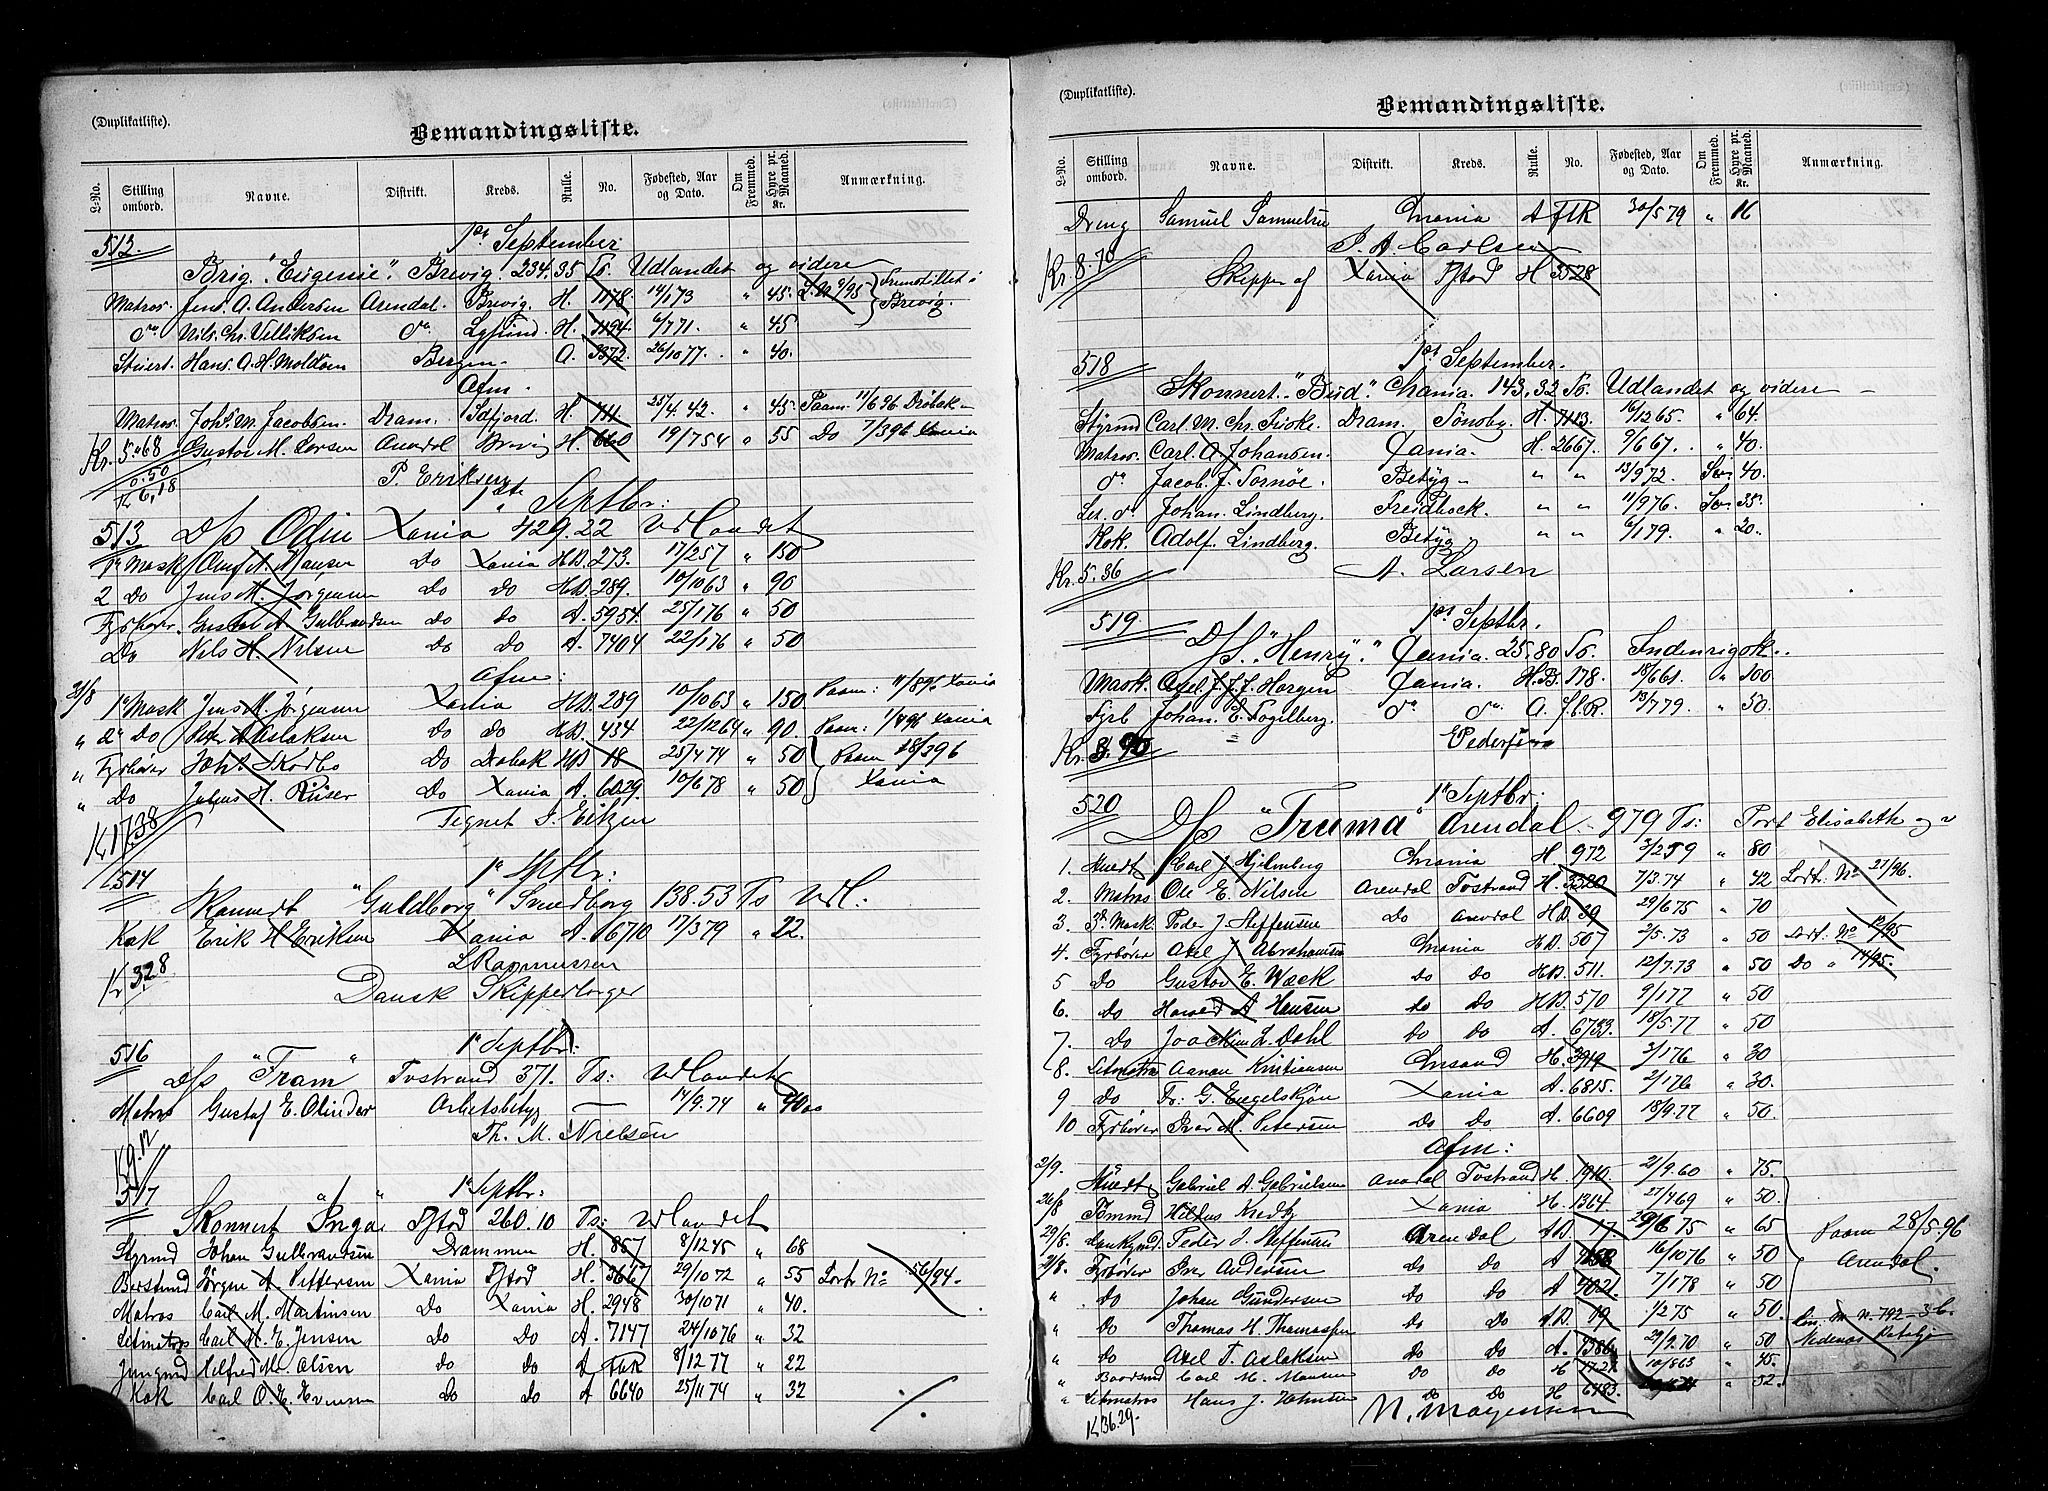 (Duplikatliste).
Bemandingsliste.
L-No. Stilling ombord. Navne. Distrikt. Kreds. Rulle. No. Fødested, Aar og Dato. Om Fremmed. Hyre pr. Maaned. Kr. Anmærkning.
512. 1ste September
Brig "Eugenie" Brevig 234.35 To. Udlandet og videre
Matros. Jens A. Andersen Arendal. Brevig. H. 1178. 14/1 73 " 45. Brevig.
do Nils Chr. do H. 1194. 6/7 71. " 45
Stuert. Hans A. H. Bergen. A. 3372. 26/10 77. " 40.
Afm.
Matros. Johs M. Jacobsen. Dram. H. 711. 25/4. 42. " 45. Paam. 11/6 96 Drøbak
Kr. 5.68 Gustav M. Larsen Arendal Brevig H. 660 19/7 54 " 55 Do 7/3 96 Xania
0.50
Kr 6,18 P. Eriksen
1ste Septbr:
513 D/s Odin Xania 429.22 Udlandet
1ste Mask Hansen Do Xania HD. 273. 17/2 57 " 150
2 Do Jens M. Jørgensen do do HD. 289. 10/10 63 " 90
Fyrbøder. Gustav A Gulbrandsen do do A. 5954. 25/1 76 " 50
Do Nils H. Nilsen do do A. 7404 22/1 76 " 50
Afm:
21/8 1ste Mask Jens M. Jørgensen Xania HD. 289 10/10 63 " 150 Paam: 11/8 96 Xania
" 2den Do Aslaksen do do HD. 434 22/12 64 " 90. Paam: 1/4 96 Xania
" Fyrbøder Johs Skorbo Do Drøbak HD 18 25/4 74 " 50 Paam 28/3 96
" Do Julius H. Riiser Do Xania A. 6029. 10/6 78 " 50 Xania
Kr 17.38 Tegnet I. Eitzen
514 1ste Septbr:
Skonnert "Guldborg" Svendborg 138.53 Ts Udl:
Kok Erik H Eriksen Xania A. 6710 17/3 79 " 22.
Kr 3.28 L Rasmussen
Dansk Skipperborger
516 1ste Septbr:
D/s "Fram" Tvestrand 371. Ts: Udlandet
Matros Gustaf E. Olinder Arbeidsbetyg — 14/9. 74 " 40.00
Th. M. Nielsen
Kr 9.12
517 1ste Septbr:
Skonnert "Inga" Fstad 260.10 Ts: Udlandet
Styrmd Johan Gulbrandsen Drammen H. 857 8/12 45 " 68
Baadsmd Jørgen A Pettersen Xania Fstad H. 3667 29/10 72 " 55 Lods No 56/94.
Matros Carl M. Martinsen Do Xania H. 2948 30/10 71 " 40.
Letmatros Carl H. E. Jensen Do Do A. 7147 24/10 76 " 32
Jungmd Hilfred M. Olsen do do A. FtlR 8/12 77 " 22
Kok Carl O. E. Evensen Do Do A 6640 25/11 74 " 32
(Duplikatliste).
Bemandingsliste.
L-No. Stilling ombord. Navne. Distrikt. Kreds. Rulle. No. Fødested, Aar og Dato. Om Fremmed. Hyre pr. Maaned. Kr. Anmærkning.
Dreng Samuel Samuelsen Chrania A FtlR 30/5 79 " 16
P. A. Carlsen
Kr. 8.70 Skipper af Xania Fstad H 3528
518 1ste September.
Skonnert. "Bud" Chania. 143,32 To. Udlandet og videre
Styrmd Carl. M. Chr. Dram. Tønsbg. H. 7113. 16/12 65. " 64.
Matros. Carl. A. Johansen. Xania. H. 2667. 9/6 67. " 40.
do Jacob. J. Tornøe. Betyg " " 13/9 72. Sv. 40.
Let. do Johan. Lindberg. Freidbock. " " 11/9 76. Sv. 35.
Kok. Adolf. Lindberg. Betyg " " 6/1 79. " 20.
Kr. 5.36 A. Larsen
519 1ste Septbr.
D/S. "Henry." Xania. 25,80 To. Indenrigsk.
Mask. Axel. J. J. J. Horgen Xania. H.B. 178. 18/6 61. " 100
Fyrb Johan. E. Fogelberg. do do A. f.l.R. 13/7 79. " 50.
Kr. 8.90 Pedersen
520 1ste Septbr:
D/s "Truma" Arendal. 979 Ts: Port Elisabeth og v
1. Carl J Hjelmberg Chrania H 972 3/2 59 " 80
2. Matros Ole E. Nilsen Arendal Tvestrand H. 3320 7/3. 74 " 42 Lods: No 27/96.
3. 3die Mask. Peder J. Steffensen Do Arendal HD. 39 29/6 75 " 70
4. Fyrbøder Axel J. Abrahamsen Chrania HD. 507 2/5. 73 " 50 Lods: No 12/95
5 Do Gustav E. Wæck do Do HD. 511. 12/7. 73 " 50 Do " 14/95.
6. do Harald A Hansen do Do HD. 570 9/1 77 " 50
7. Do Joachim L. Dahl do Do A. 6733. 18/5. 77 " 50
8. Letmatros Aanon Kristiansen Chrsand H. 3919 3/1 76 " 30
9 do Fr: G. Engelskjøn Xania A. 6815. 2/1 76 " 30.
10 Fyrbøder Iver M. Petersen Do Do A. 6609 18/9. 77 " 50.
Afm:
2/9. Gabriel A Gabrielsen Arendal Tvestrand H. 1910. 21/9. 60 " 75.
26/8 Tømmd Hilfus Xania H. 1364 27/4 69 " 50.
29/8 Peder J. Steffensen Arendal AD. 17. 29/6 75 " 65 Paam 28/5.96
21/8. Fyrbøder Iver Andersen Do do A 4158 16/10 76 " 50 Arendal.
" Do Johan Gundersen Do Do A 4021. 7/1 78 " 50
" Do Thomas H. Thomassen do do AD. 19 1/2 75 " 50. 792
" Do Axel T. Aslaksen Do Do A. 1386 29/9. 70 " 50
" Baadsmd Carl M. Hansen Do Do H 1727. 10/8 63 " 45.
" Letmatros Hans J. Do Do H 6183. " 32.
Kr 36.29. N. Mogensen